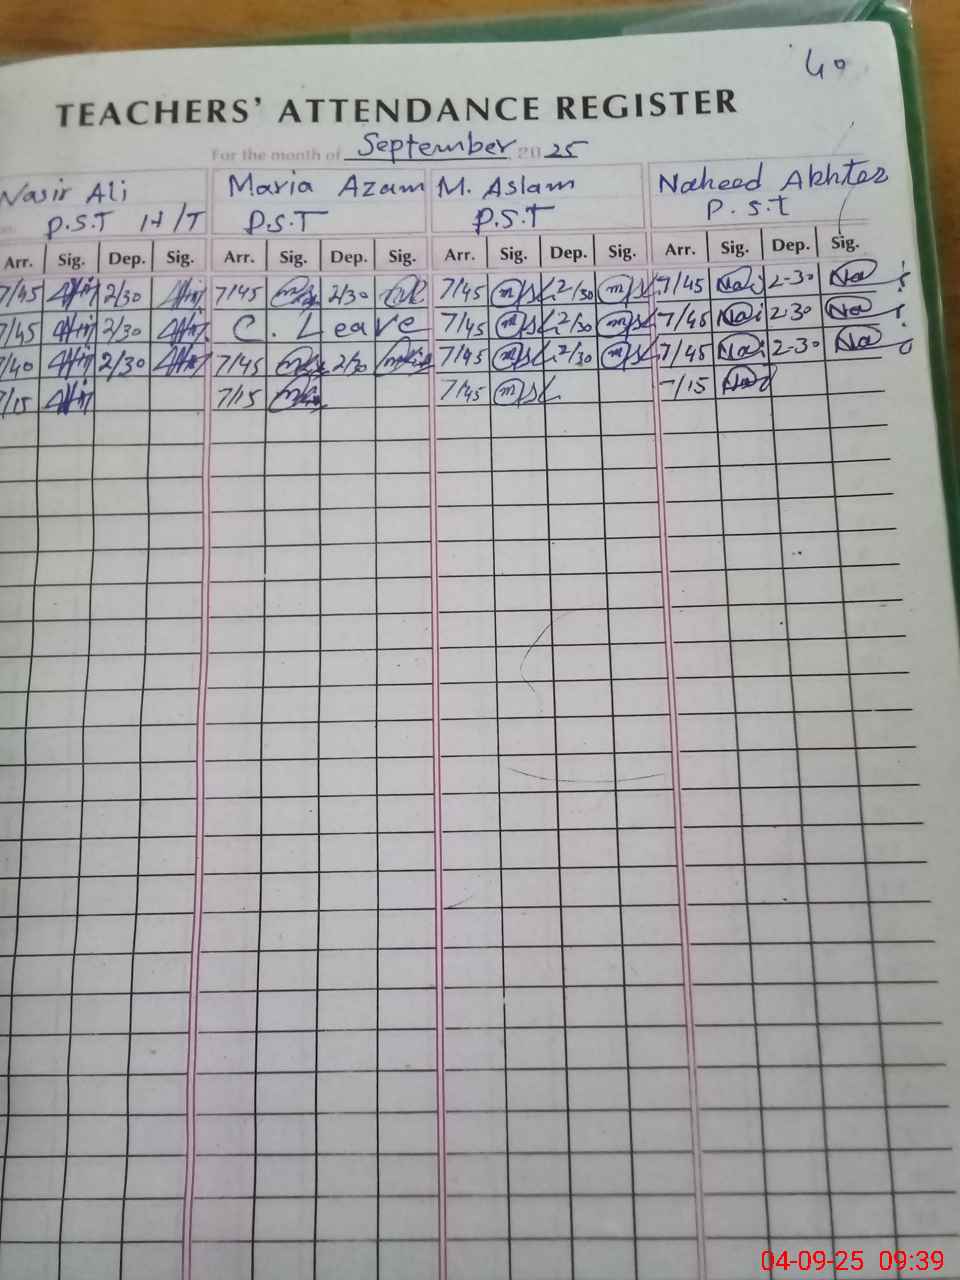 40
TEACHERS' ATTENDANCE REGISTER
For the month of September 2025
Nasir Ali Maria Azam M. Aslam Naheed Akhter
P.S.T H/T P.S.T P.S.T P.S.t
Arr. Sig. Dep. Sig. Arr. Sig. Dep. Sig. Arr. Sig. Dep. Sig. Arr. Sig. Dep. Sig.
7/45 2/30 7/45 2/30 7/45 2/30 7/45 Na 2-30 Na
7/45 2/30 C. Leave 7/45 2/30 7/45 Na 2-30 Na
7/40 2/30 7/45 2/30 7/45 2/30 7/45 Na 2-30 Na
7/15 7/15 7/45 7/15
04-09-25 09:39